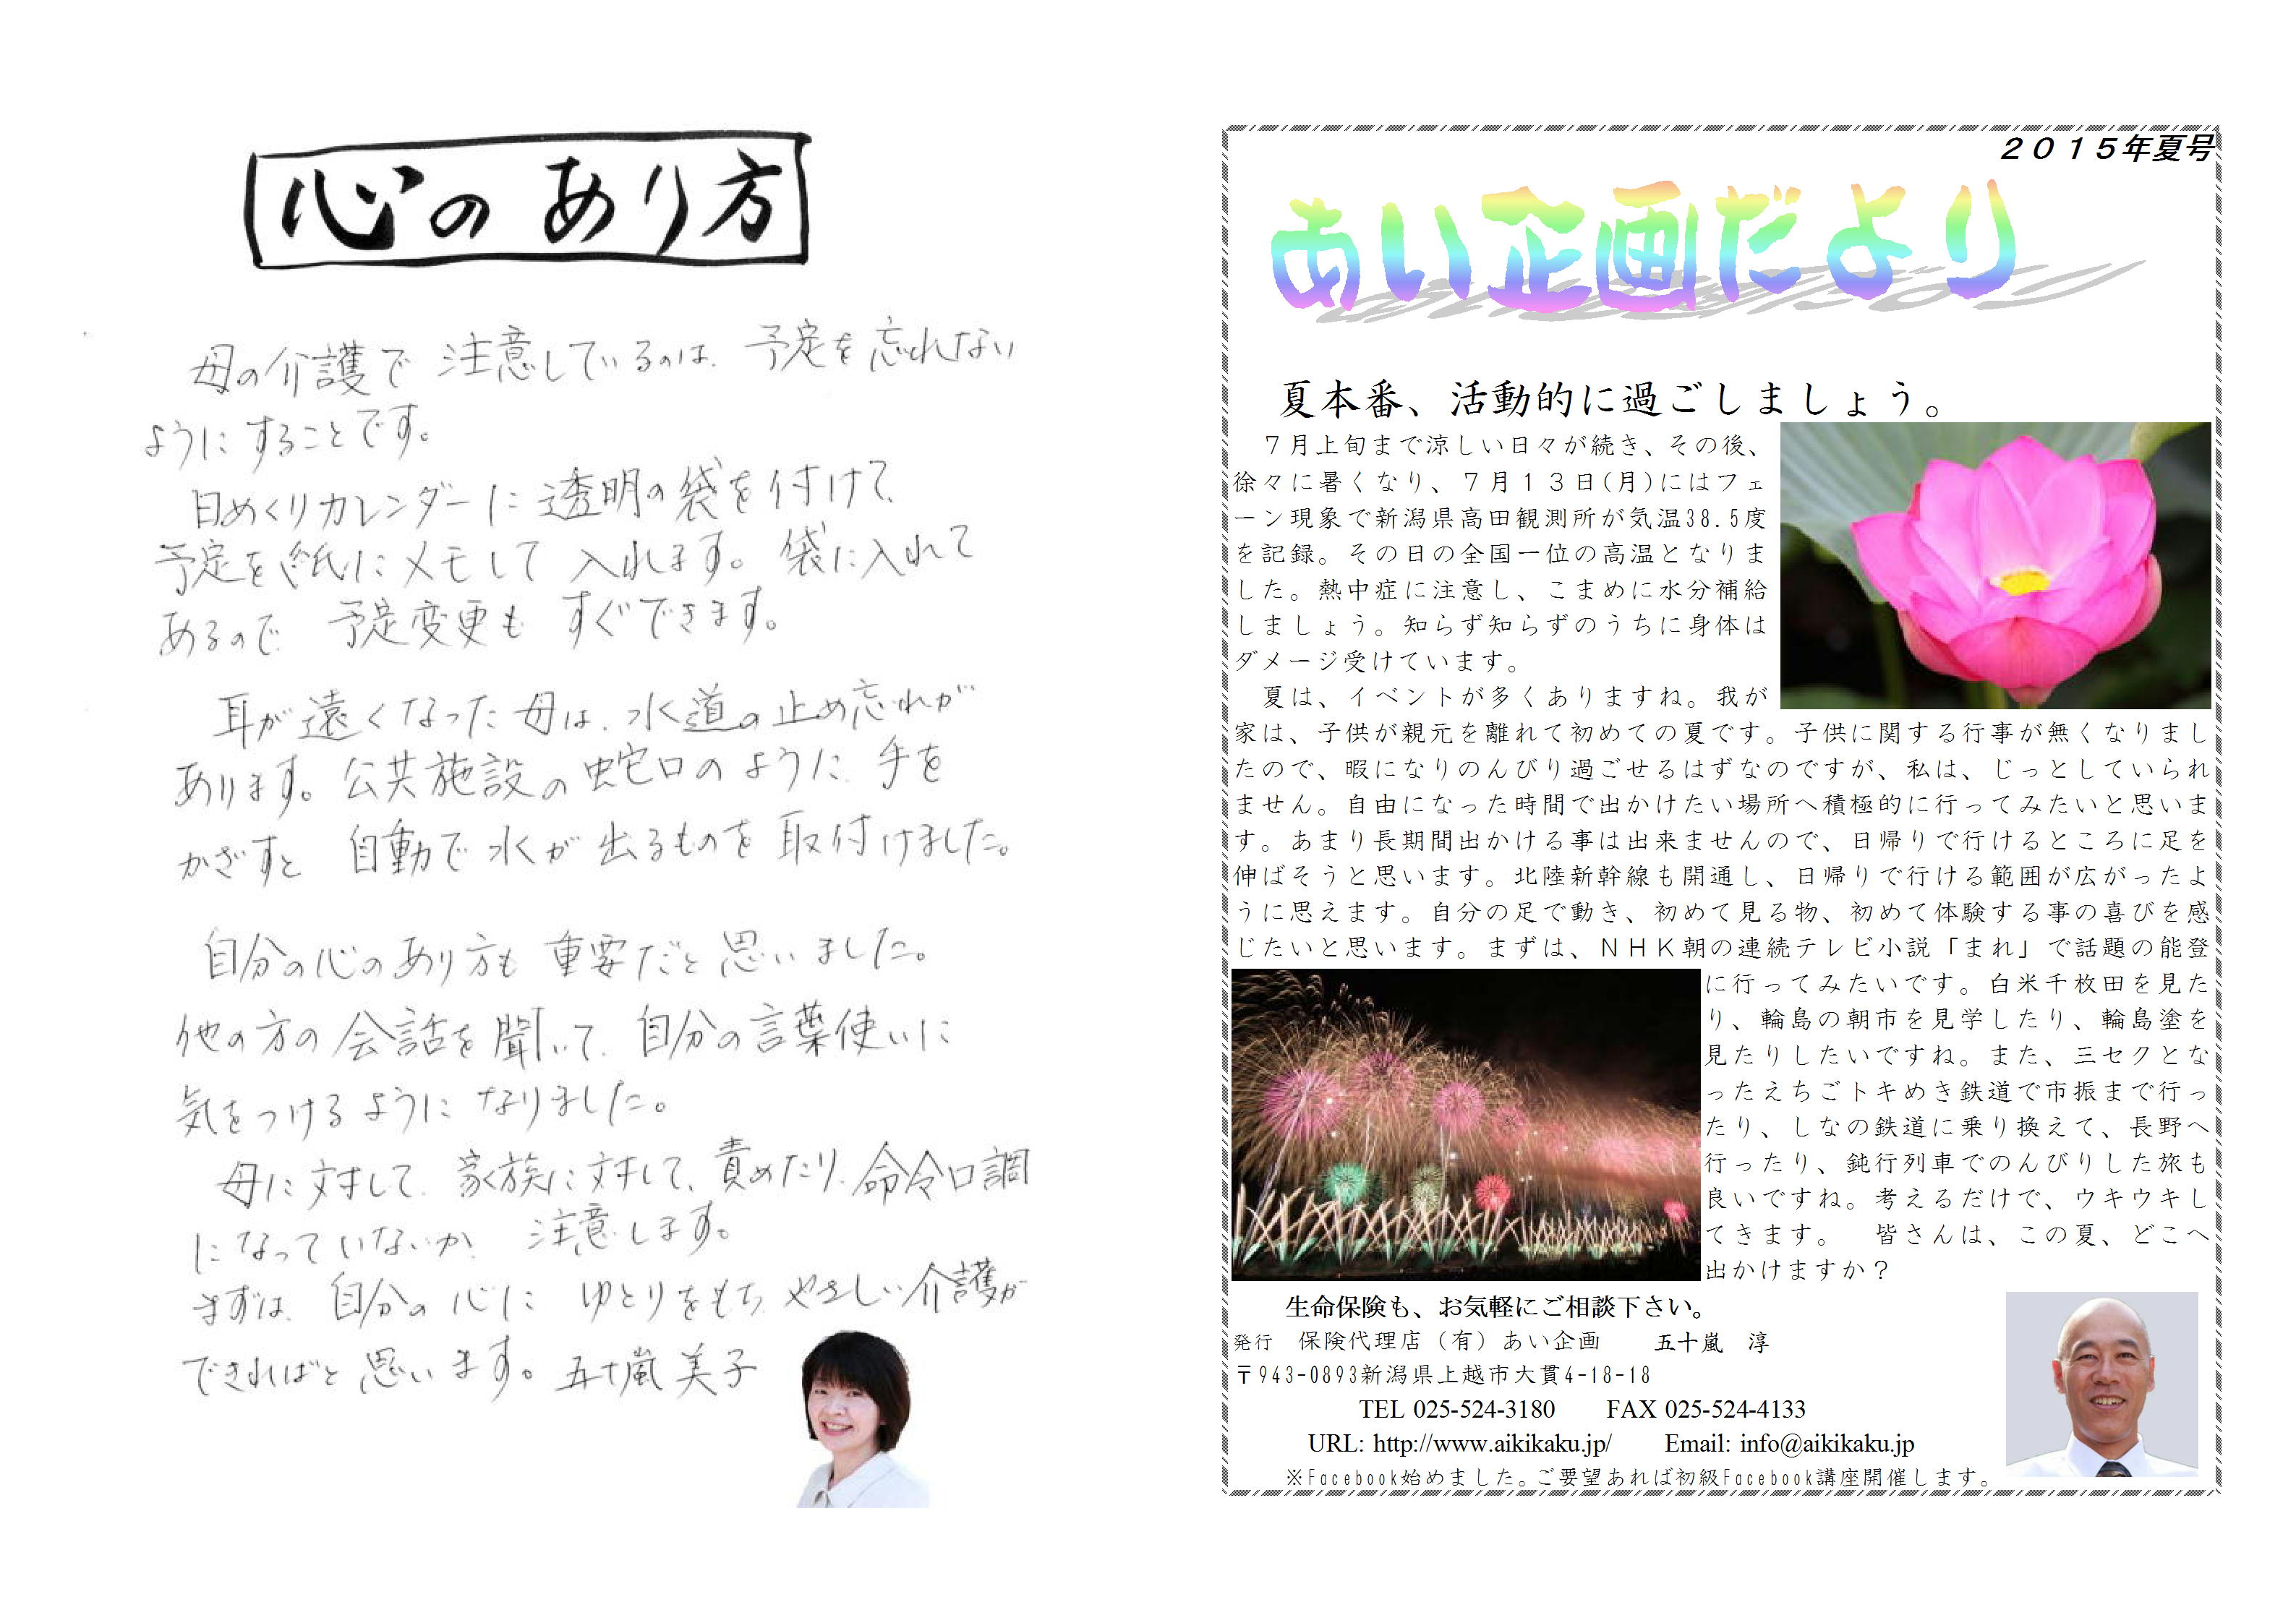 心のあり方
母の介護で注意しているのは、予定を忘れない
ようにすることです。
日めくりカレンダーに透明の袋を付けて、
予定を紙にメモして入れます。袋に入れて
あるので、予定変更もすぐできます。
耳が遠くなった母は、水道の止め忘れが
あります。公共施設の蛇口のように、手を
かざすと自動で水が出るものを取付けました。
自分の心のあり方も重要だと思いました。
他の方の会話を聞いて、自分の言葉使いに
気をつけるようになりました。
母に対して、家族に対して、責めたり、命令口調
になっていないか、注意します。
まずは、自分の心にゆとりをもち、やさしい介護が
できればと思います。五十嵐美子
２０１５年夏号
あい企画だより
夏本番、活動的に過ごしましょう。
７月上旬まで涼しい日々が続き、その後、
徐々に暑くなり、７月１３日(月)にはフェ
ーン現象で新潟県高田観測所が気温38.5度
を記録。その日の全国一位の高温となりま
した。熱中症に注意し、こまめに水分補給
しましょう。知らず知らずのうちに身体は
ダメージ受けています。
夏は、イベントが多くありますね。我が
家は、子供が親元を離れて初めての夏です。子供に関する行事が無くなりまし
たので、暇になりのんびり過ごせるはずなのですが、私は、じっとしていられ
ません。自由になった時間で出かけたい場所へ積極的に行ってみたいと思いま
す。あまり長期間出かける事は出来ませんので、日帰りで行けるところに足を
伸ばそうと思います。北陸新幹線も開通し、日帰りで行ける範囲が広がったよ
うに思えます。自分の足で動き、初めて見る物、初めて体験する事の喜びを感
じたいと思います。まずは、ＮＨＫ朝の連続テレビ小説「まれ」で話題の能登
に行ってみたいです。白米千枚田を見た
り、輪島の朝市を見学したり、輪島塗を
見たりしたいですね。また、三セクとな
ったえちごトキめき鉄道で市振まで行っ
たり、しなの鉄道に乗り換えて、長野へ
行ったり、鈍行列車でのんびりした旅も
良いですね。考えるだけで、ウキウキし
てきます。　皆さんは、この夏、どこへ
出かけますか？
生命保険も、お気軽にご相談下さい。
発行　保険代理店（有）あい企画　　五十嵐　淳
〒943-0893新潟県上越市大貫4-18-18
TEL 025-524-3180　　FAX 025-524-4133
URL: http://www.aikikaku.jp/　　Email: info@aikikaku.jp
※Facebook始めました。ご要望あれば初級Facebook講座開催します。